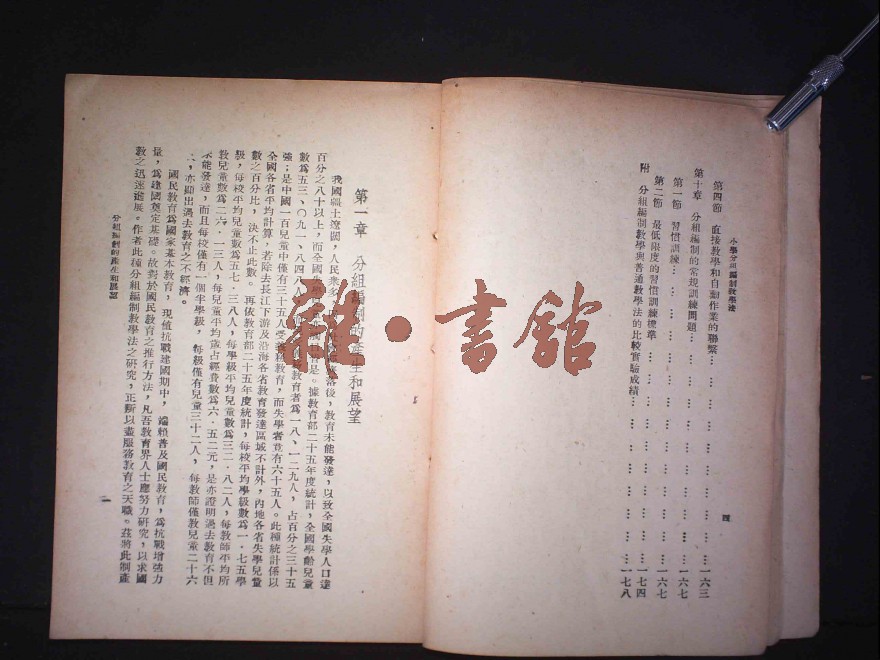 小學分組編制教學法
第四節 直接教學和自動作業的聯繫…………一六三
第十章 分組編制的常規訓練問題…………一六七
第一節 習慣訓練…………一六七
第二節 最低限度的習慣訓練標準…………一七四
附 分組編制教學與普通教學法的比較實驗成績…………一七八
四
雜·書館
第一章 分組編制的產生和展望
我國疆土遼闊,人民衆多,落後,教育未能發達,以致全國失學人口達
百分之八十以上,而全國失學是。據教育部二十五年度統計,全國學齡兒童
數爲五三、〇九一、八四八教育者爲一八、一二九八人,占百分之三十五
強;是中國一百兒童中僅有三十五人受教育,而失學者竟有六十五人。此種統計係以
全國各省平均計算,若除去長江下游及沿海各省教育發達區域不計外,內地各省失學兒童
數之百分比,決不止此數。再依教育部二十五年度統計,每校平均學級數爲一·七五學
級,每校平均兒童數爲五七·三八人,每學級平均兒童數爲三二·八二人,每教師平均所
教兒童數爲二六·一三人,每兒童平均歲占經費數爲六·五二元,是亦證明過去教育不但
未能發達,而且每校僅有一個半學級,每級僅有兒童三十二人,每教師僅教兒童二十六
人,亦抑出過去教育之不經濟。
國民教育爲國家基本教育,現値抗戰建國期中,端賴普及國民教育,爲抗戰增強力
量,爲建國奠定基礎。故對於國民教育之推行方法,凡吾教育界人士應努力研究,以求國
教之迅速進展。作者此種分組編制教學法之研究,正所以盡服務教育之天職。茲將此制產
分組編制的產生和展望
一